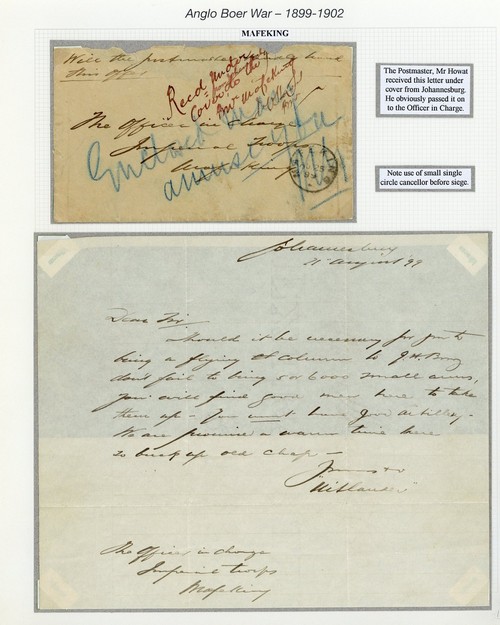 Anglo Boer War – 1899-1902
MAFEKING
Will the postmaster hand
this Off
Recd. under
Cover to the
Pmr Mafeking
The Officer in charge
Imperial Troops
Mafeking
The Postmaster, Mr Howat
received this letter under
cover from Johannesburg.
He obviously passed it on
to the Officer in Charge.
Note use of small single
circle cancellor before siege.
Johannesburg
21 August '99
Dear Sir
Should it be necessary for you to
bring a flying column to J.H.Burg
don't fail to bring 5 or 6000 small arms,
you will find good men here to take
them up - You must have good artillery.
We are promised a warm time here
So buck up old chap -
Yours &c
"Uitlander"
The Officer in charge
Imperial troops
Mafeking